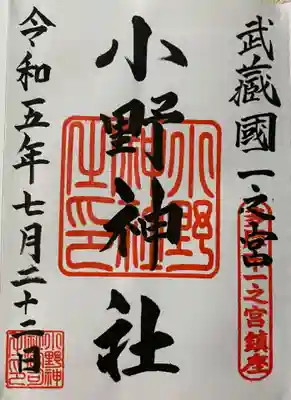 武蔵國一之宮
一之宮鎮座
小野神社
小野神社之印
令和五年七月二十二日
小野神